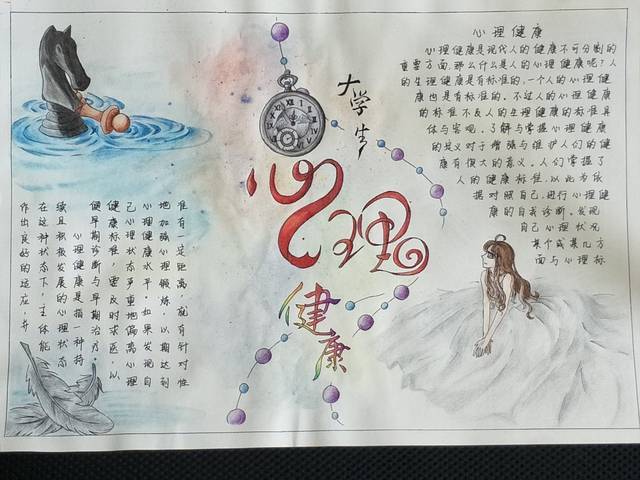 大学生
心理
健康
心理健康
心理健康是现代人的健康不可分割的
重要方面,那么什么是人的心理健康呢?人
的生理健康是有标准的,一个人的心理健
康也是有标准的。不过人的心理健康
的标准不及人的生理健康的标准具
体与客观。了解与掌握心理健康
的定义对于增强与维护人们的健
康有很大的意义。人们掌握了
人的健康标准,以此为依
据对照自己,进行心理健
康的自我诊断。发现
自己心理状况
某个或某几方
面与心理标
准有一定距离,就有针对性
地加强心理锻炼,以期达到
心理健康水平。如果发现自
己心理状态严重地偏离心理
健康标准,需及时求医,以
健早期诊断与早期治疗。
心理健康是指一种持
续且积极发展的心理状态
在这种状态下,主体能
作出良好的适应,并